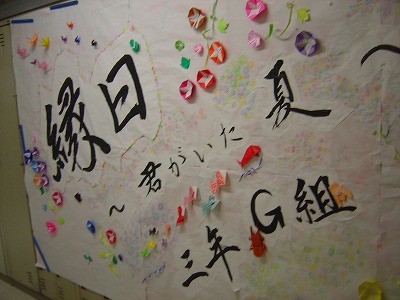 縁日
~君がいた夏~
三年G組